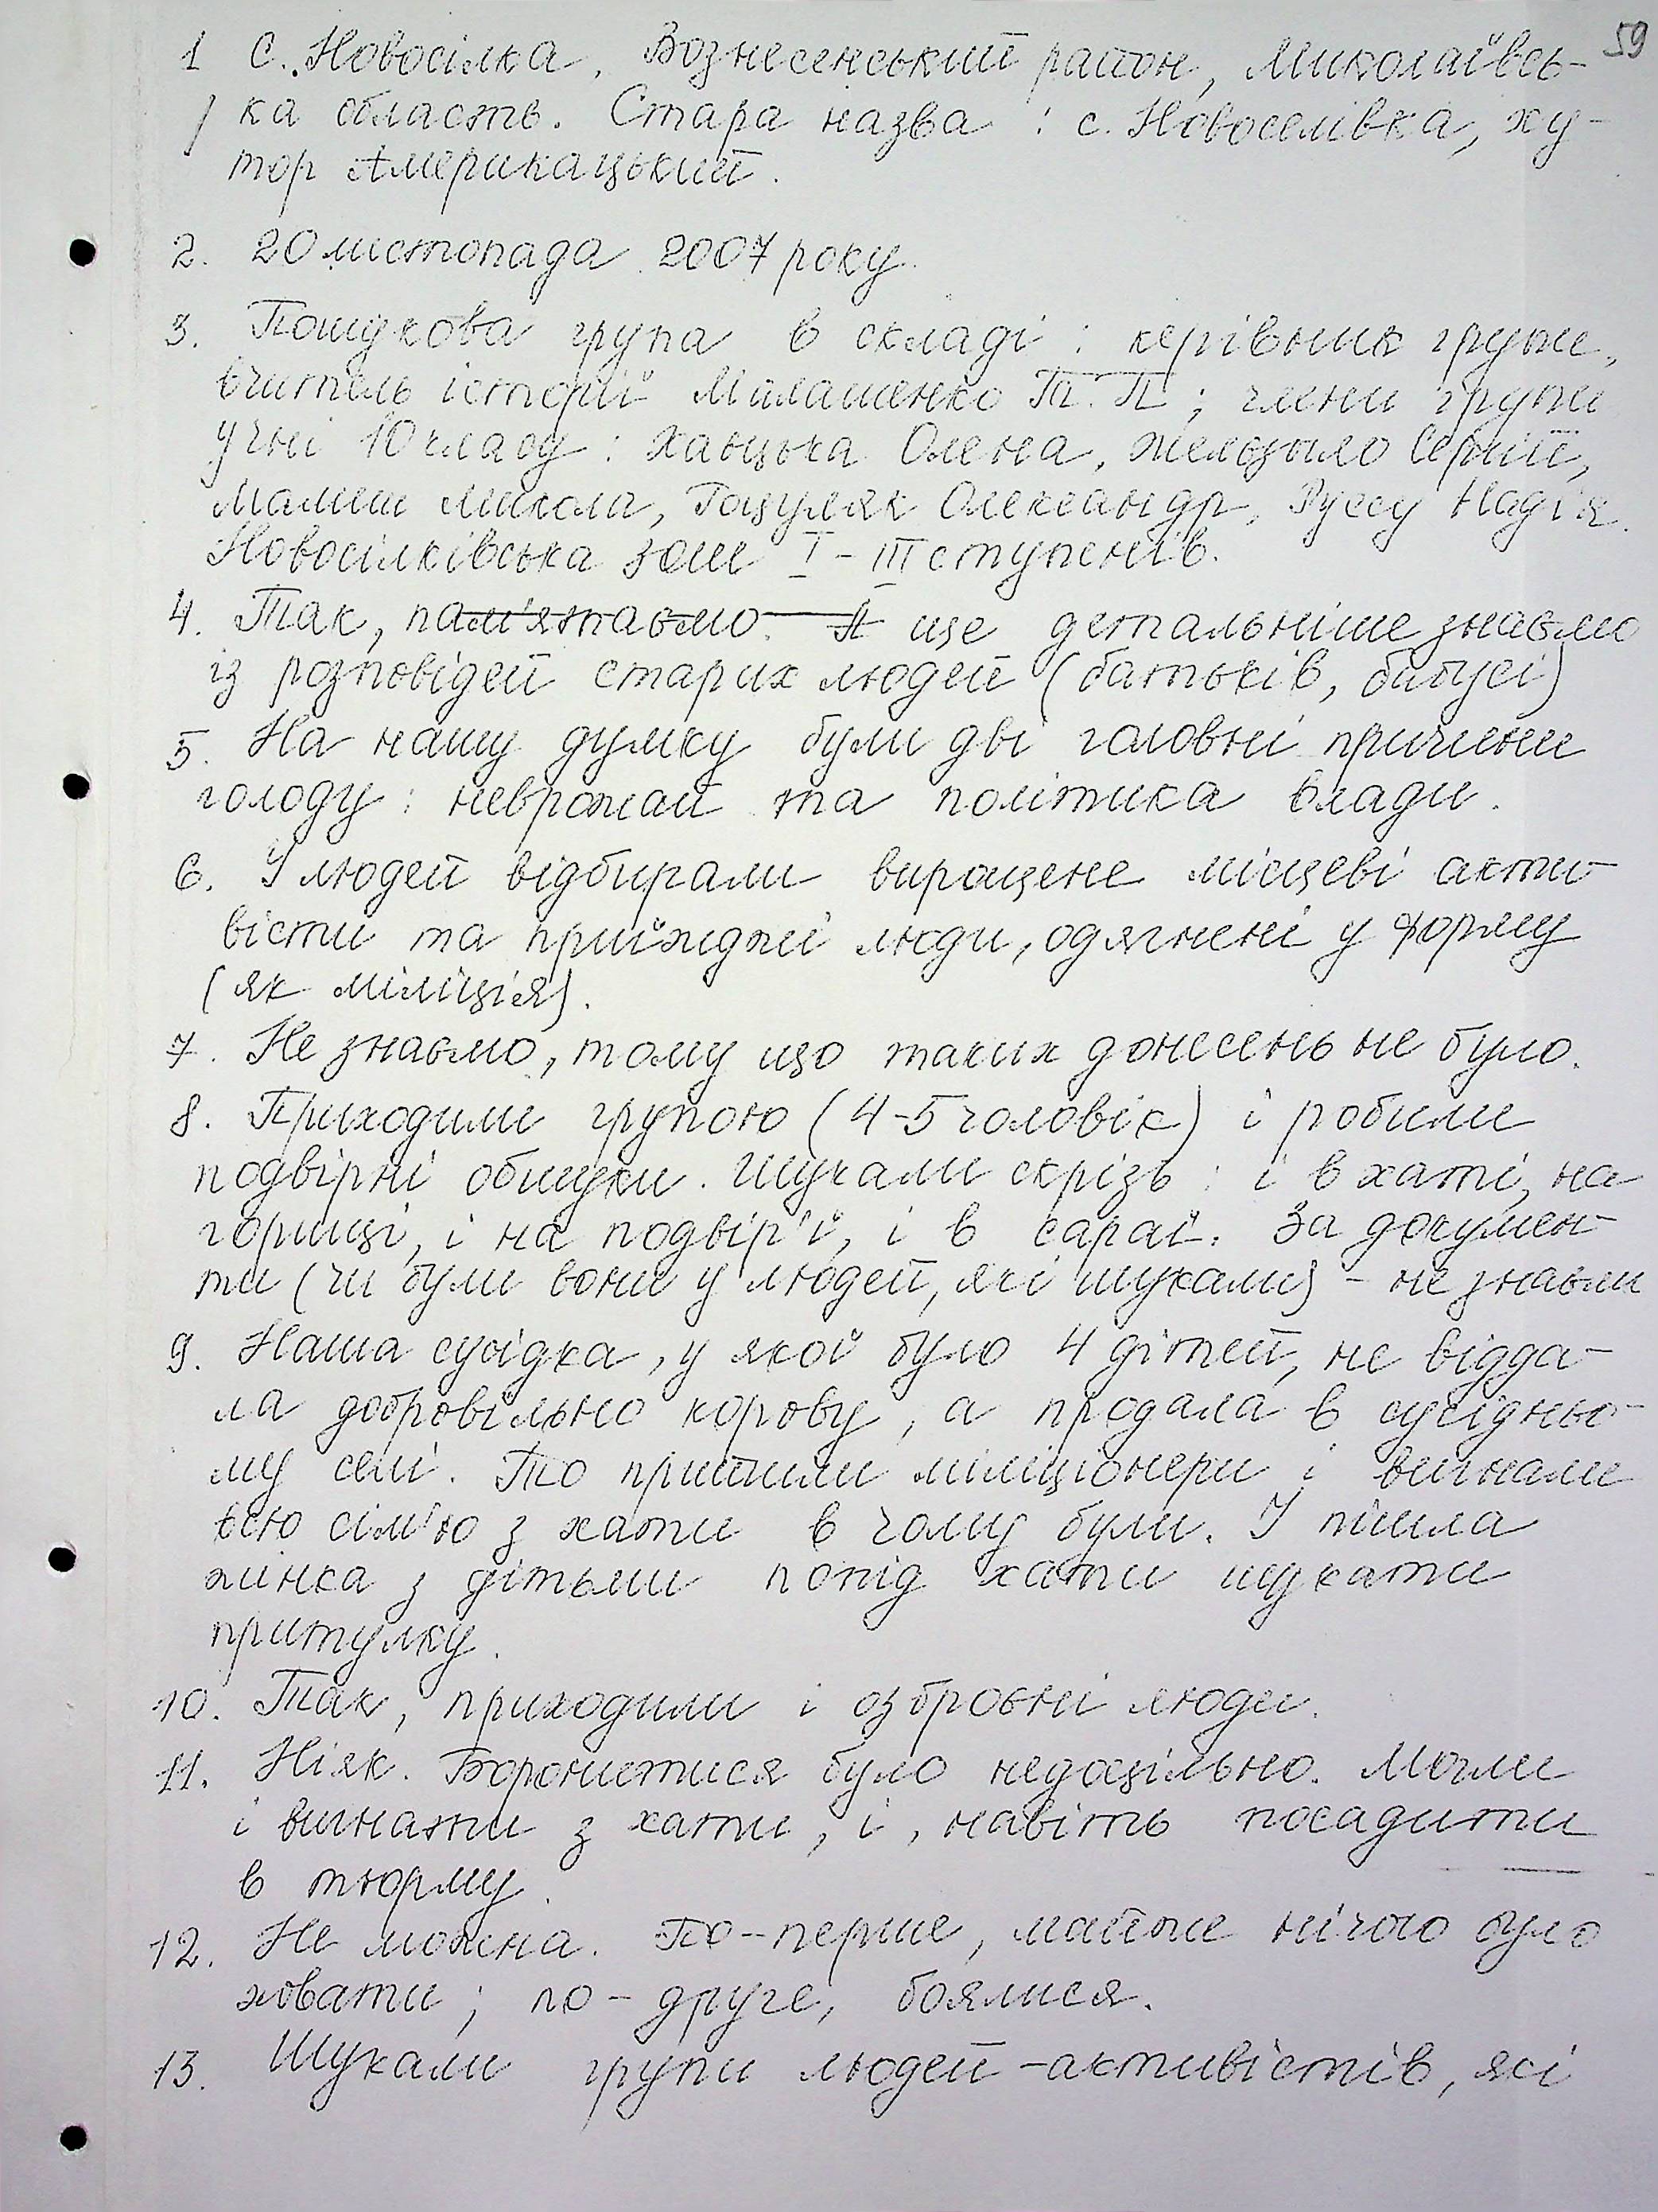 59
1 С. Новосілка, Вознесенський район, Миколаївсь-
ка область. Стара назва : с. Новоселівка, ху-
тор Американський.
2. 20 листопада 2007 року.
3. Пошукова група в складі : керівник групи,
вчитель історії Малашенко Т. П ; члени групи
учні 10 класу : Олена, Сергій,
Малиш Микола, Гоцуляк Олександр, Руссу Надія.
Новосілківська зош I - III ступенів.
4. Так, пам'ятаємо. А ще детальніше знаємо
із розповідей старих людей (батьків, бабусі)
5. На нашу думку були дві головні причини
голоду : неврожаї та політика влади.
6. У людей відбирали вирощене місцеві акти-
вісти та приїжджі люди, одягнені у форму
(як міліція).
7. Не знаємо, тому що таких донесень не було.
8. Приходили групою (4-5 чоловік) і робили
подвірні обшуки. Шукали скрізь : і в хаті, на
горищі, і на подвір'ї, і в сараї. За докумен-
ти (чи були вони у людей, які шукали) - не знаєм
9. Наша сусідка, у якої було 4 дітей, не відда-
ла добровільно корову, а продала в сусідньо-
му селі. То прийшли міліціонери і вигнали
всю сім'ю з хати в чому були. І пішла
жінка з дітьми попід хати шукати
притулку.
10. Так, приходили і озброєні люди.
11. Ніяк. Боронитися було недоцільно. Могли
і вигнати з хати, і, навіть посадити
в тюрму.
12. Не можна. По-перше, майже нічого було
ховати ; по-друге, боялися.
13. Шукали групи людей-активістів, які